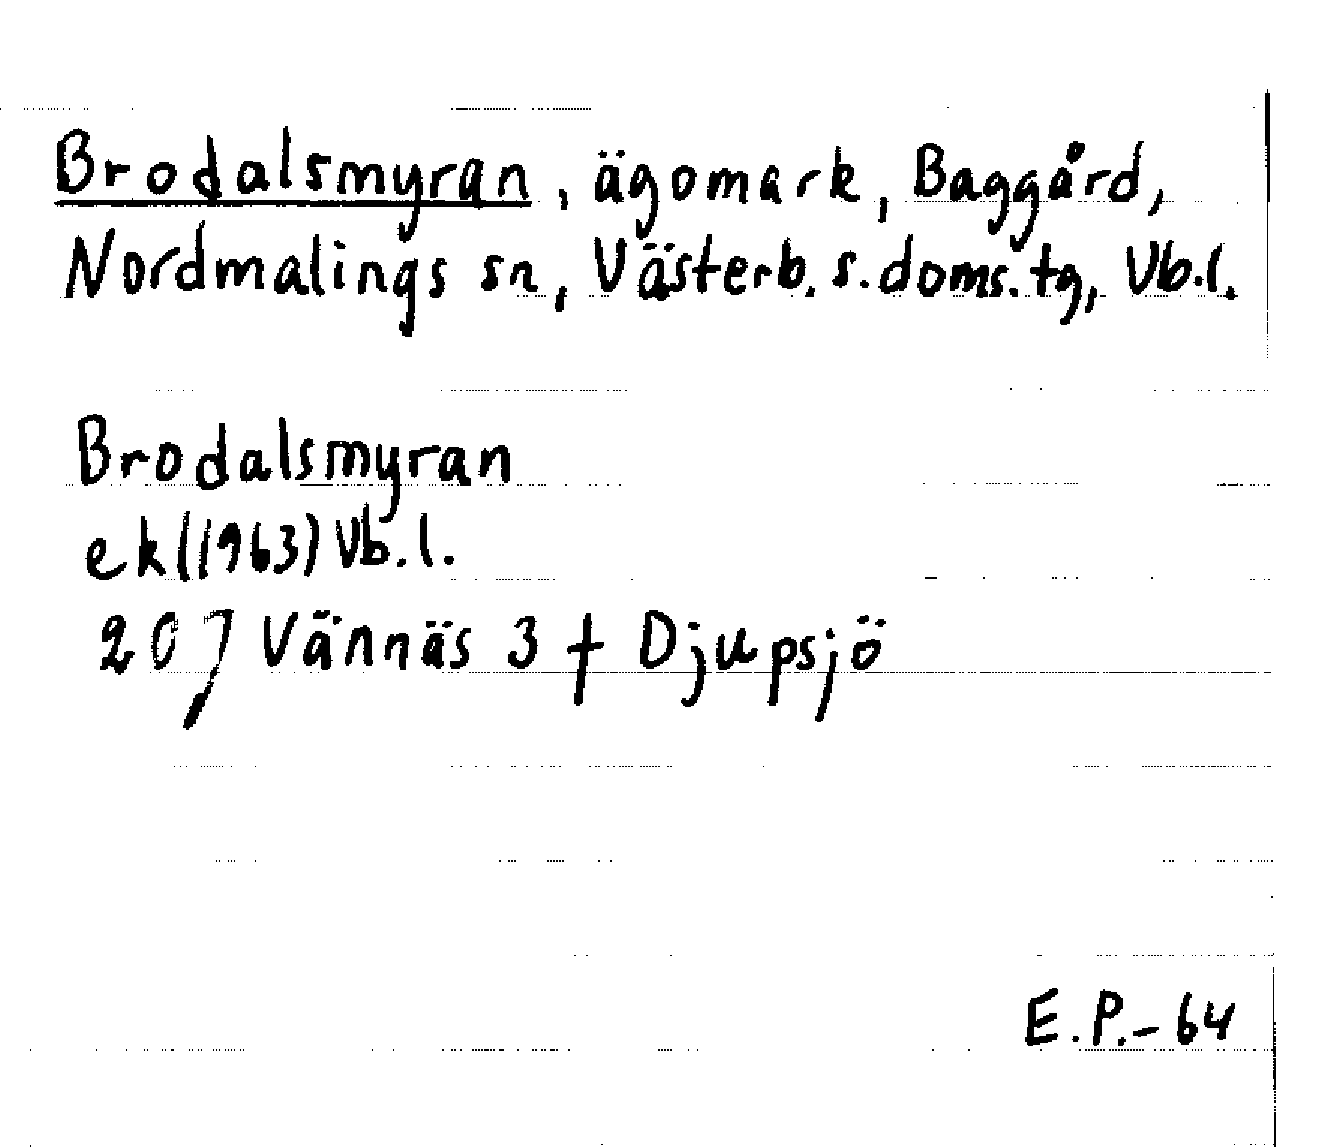 Brodalsmyran, ägomark, Baggård,
Nordmalings sn, Västerb. s. doms. tg, Vb.l.
Brodalsmyran
ek (1963) Vb.l.
20J Vännäs 3 f Djupsjö
E.P.-64